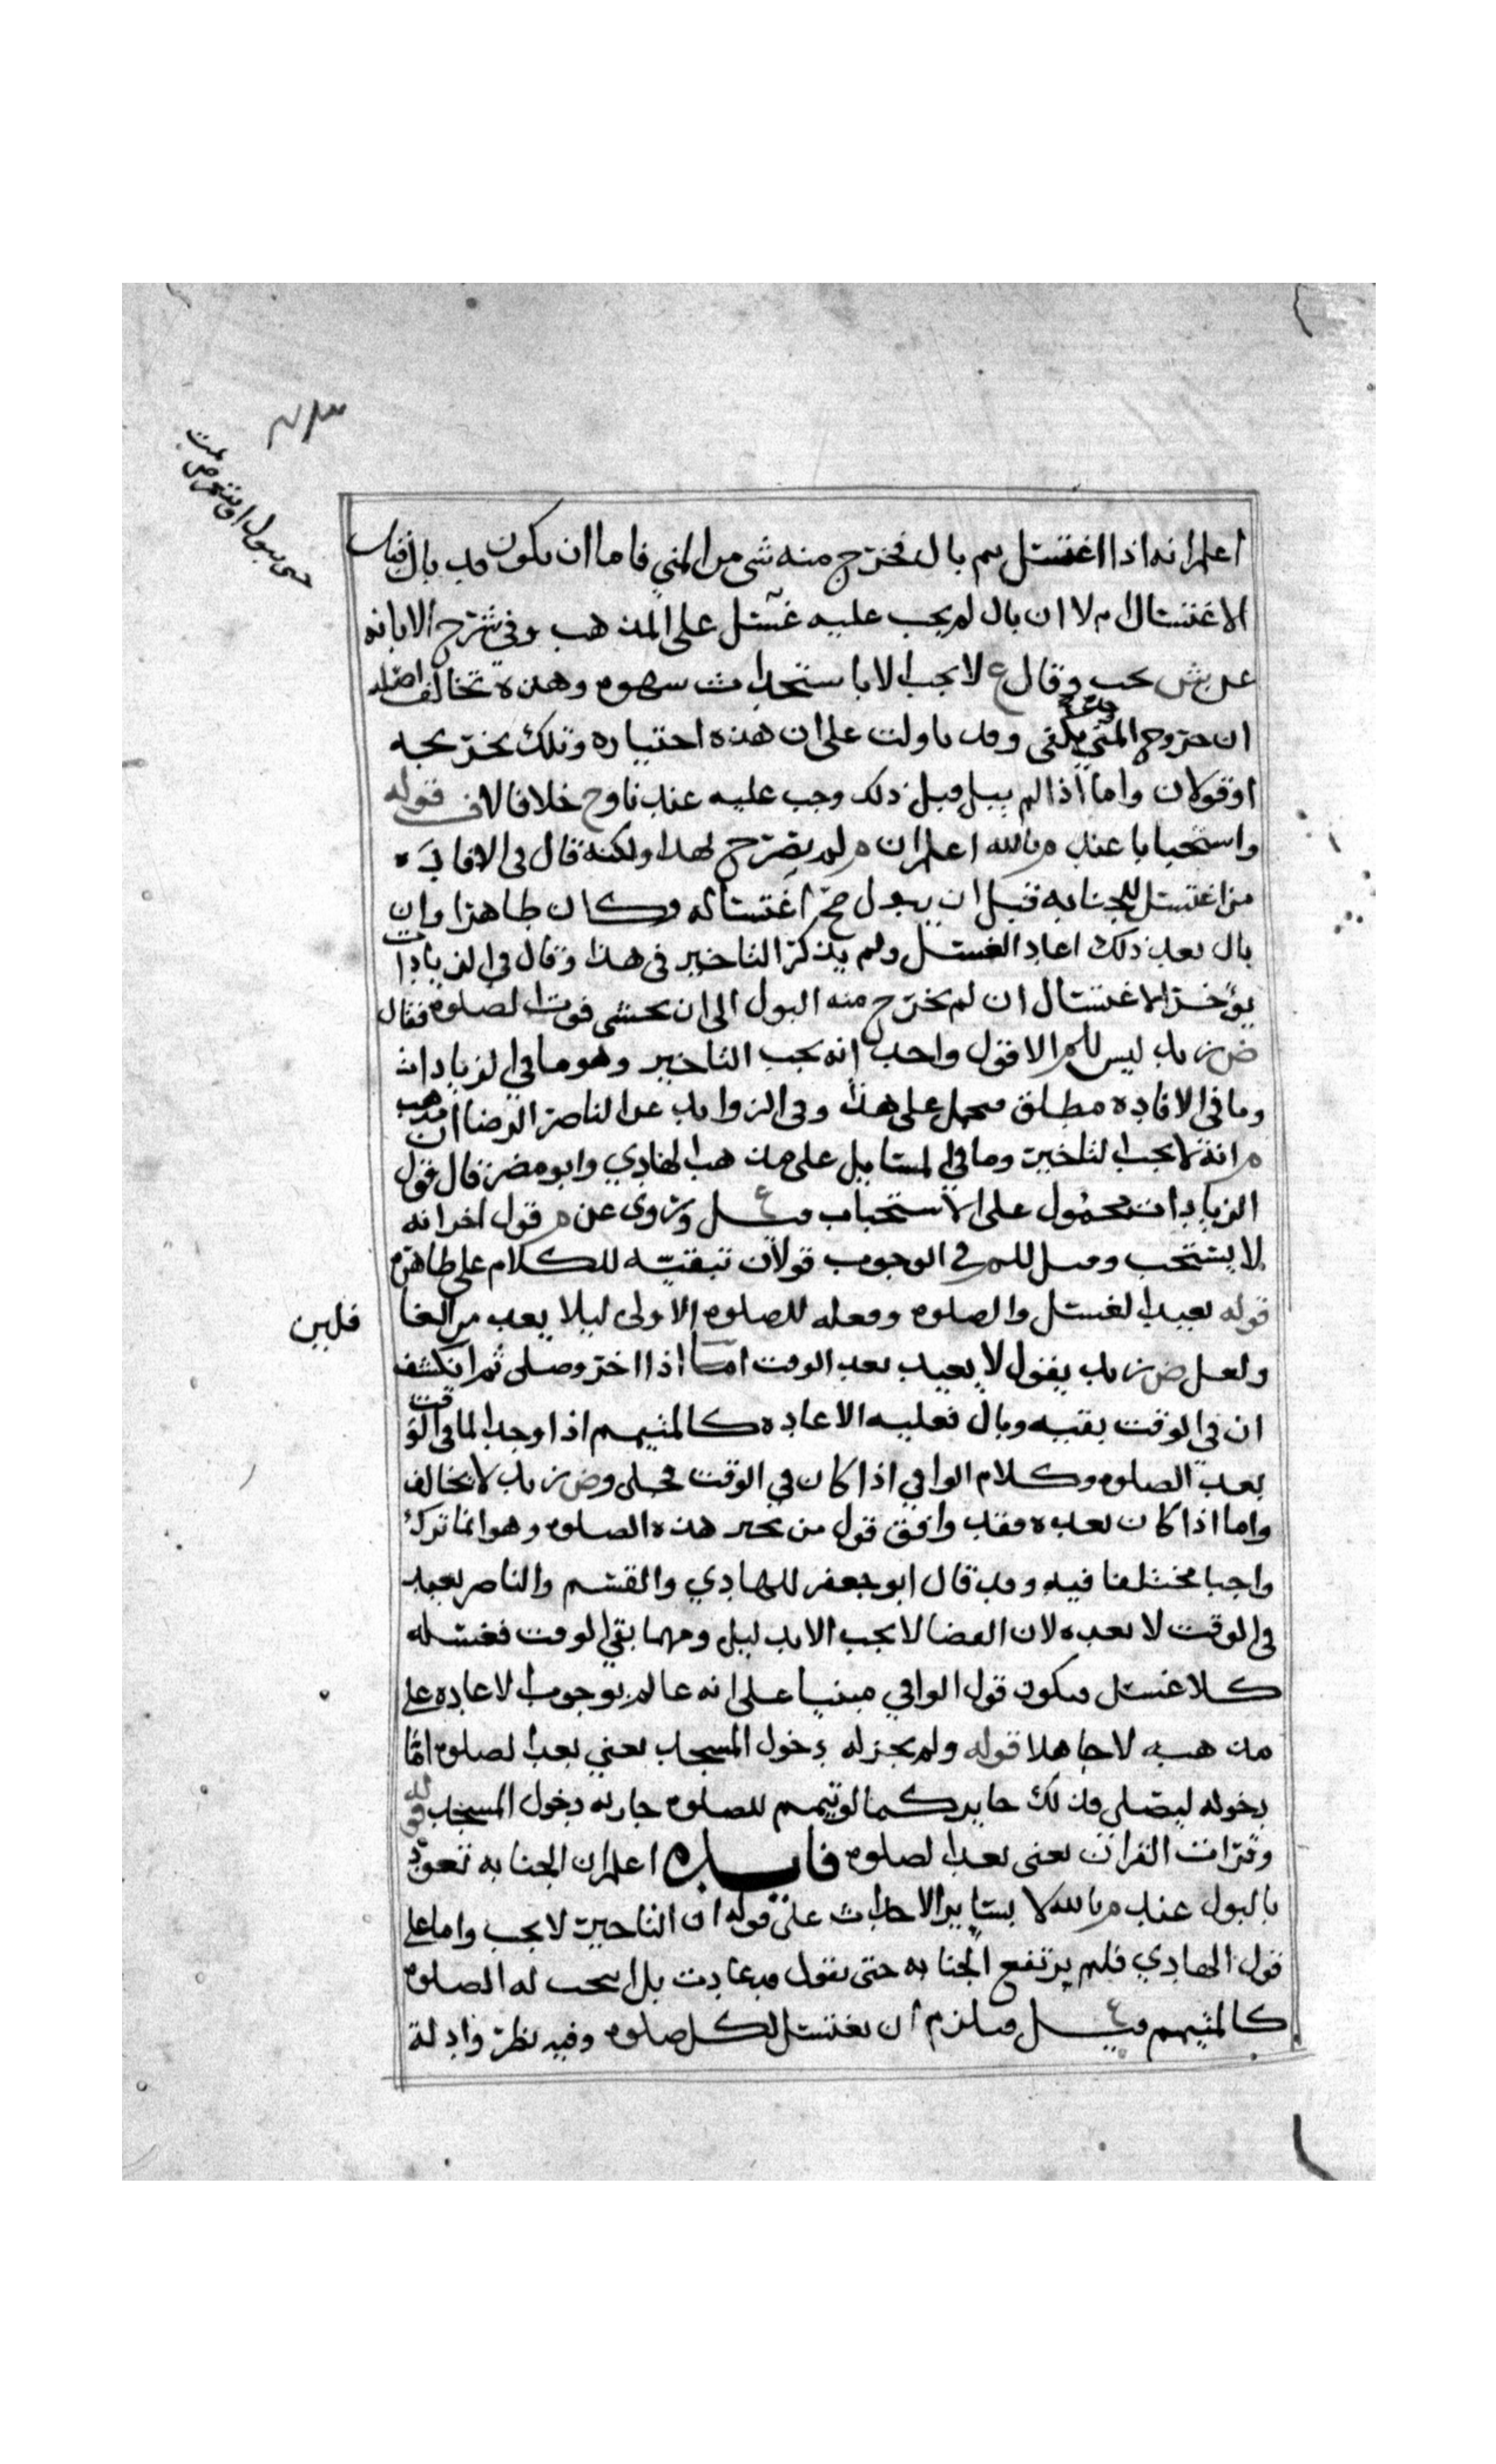 اعلم انه اذا اغتسل ثم بال فخرج منه شي من المني فاما ان يكون قد بال قبل
الاغتسال ام لا ان بال لم يجب عليه غسل على المذهب وفي شرح الابانه
عن يجب وقال ع لا يجب الا باستحداث شهوه وهذه تخالف اصله
ان خروج المني يكفي وقد تاولت على ان هذه اختياره وتلك تخريجه
او قولان واما اذا لم يبل قبل ذلك وجب عليه عند خلافا لاف قوله
واستحبابا عند م بالله اعلم ان م لم يصرح لهذا ولكنه قال في الافاده
من اغتسل للجنابه قبل ان يبول صح اغتساله وكان طاهرا وان
بال بعد ذلك اعاد الغسل ولم يذكر التاخير في هذا وقال في الزيادات
يؤخر الاغتسال ان لم يخرج منه البول الى ان يخشى فوت الصلوه فقال
ض زيد ليس للم الا قول واحد انه يجب التاخير وهو ما في الزيادات
وما في الافاده مطلق محمل على هذا وفي الزوايد عن الناصر الرضا ان مذهب
م انه لا يجب التاخير وما في المسايل على مذهب الهادي وابو مضر قال قول
الزيادات محمول على الاستحباب قيل ع وروى عن م قول اخر انه
لا يستحب وقيل للم في الوجوب قولان تبقيه للكلام على ظاهره
قوله يعيد الغسل والصلوه وفعله للصلوه الاولى ليلا يعد من الغا
فلين
ولعل ض زيد يقول لا يعيد بعد الوقت اما اذا اخر وصلى ثم انكشف
ان في الوقت بقيه وبال فعليه الاعاده كالمتيمم اذا وجد الما في الوقت
بعد الصلوه وكلام الوافي اذا كان في الوقت فجلي وض زيد لا يخالف
واما اذا كان بعده فقد وافق قول من هذه الصلوه وهو انما ترك
واجبا مختلفا فيه وقد قال ابو جعفر للهادي والقسم والناصر يعيد
في الوقت لا بعده لان القضا لا يجب الا بدليل ومهما بقي الوقت فغسله
كلا غسل فيكون قول الوافي مبنيا على انه عالم بوجوب الاعاده على
مذهبه لا جاهلا قوله ولم يجز له دخول المسجد يعني بعد الصلوه اما
دخوله ليصلي فذلك جايز كما لو تيمم للصلوه جاز له دخول المسجد
وقرات القران يعني بعد الصلوه فايده اعلم ان الجنابه تعود
بالبول عند م بالله لا بساير الاحداث على قوله ان التاخير لا يجب واما على
قول الهادي فلم يرتفع الجنابه حتى يقول قد عادت بل له الصلوه
كالمتيمم قيل ع فيلزم ان يغتسل لكل صلوه وفيه نظر وادلة